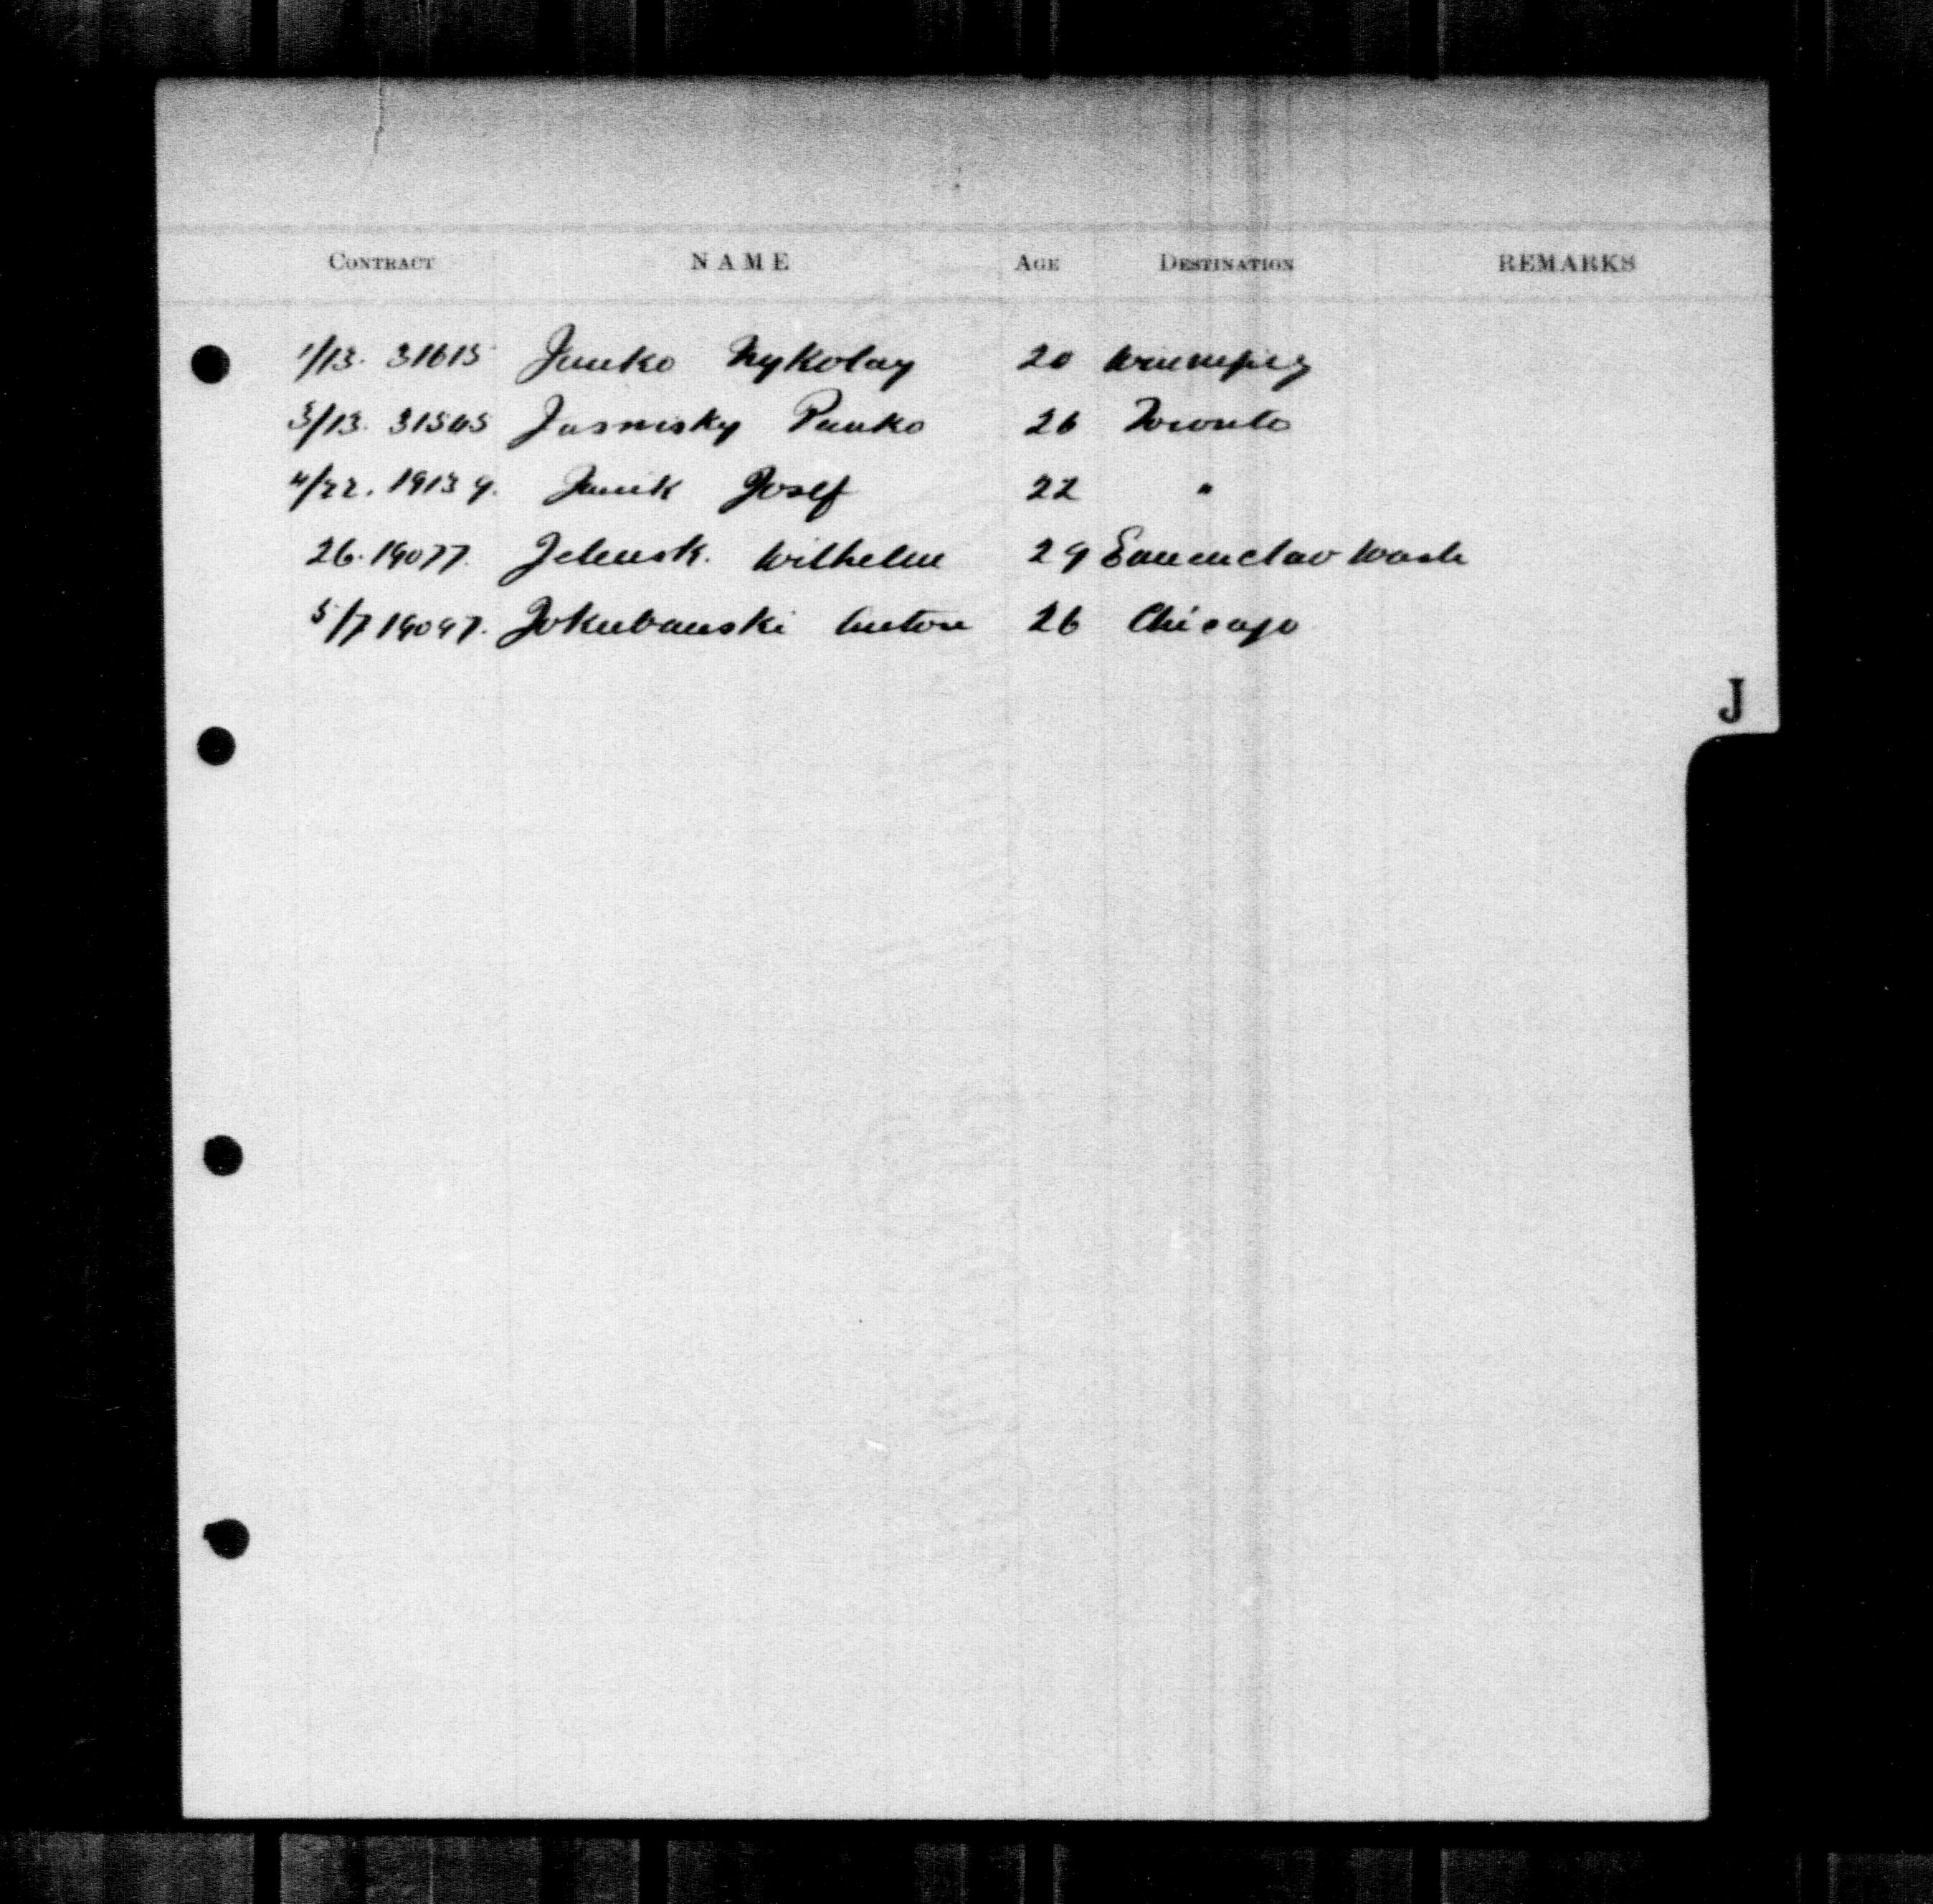 CONTRACT NAME AGE DESTINATION REMARKS
1/13. 31615 Janko Nykolay 20 Winnipeg
3/13. 31545 Jasnisky Panko 26 Toronto
4/22. 19139. Janik Josef 22 "
26. 19077. Jelensk. Wilhelm 29 Enumclav Wash
5/7 19097. Jokubauski Anton 26 Chicago
J